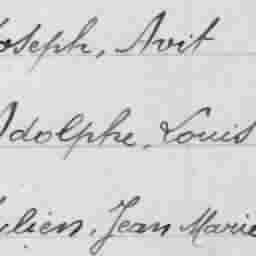 Joseph, Avit
Adolphe, Louis
Julien, Jean Marie